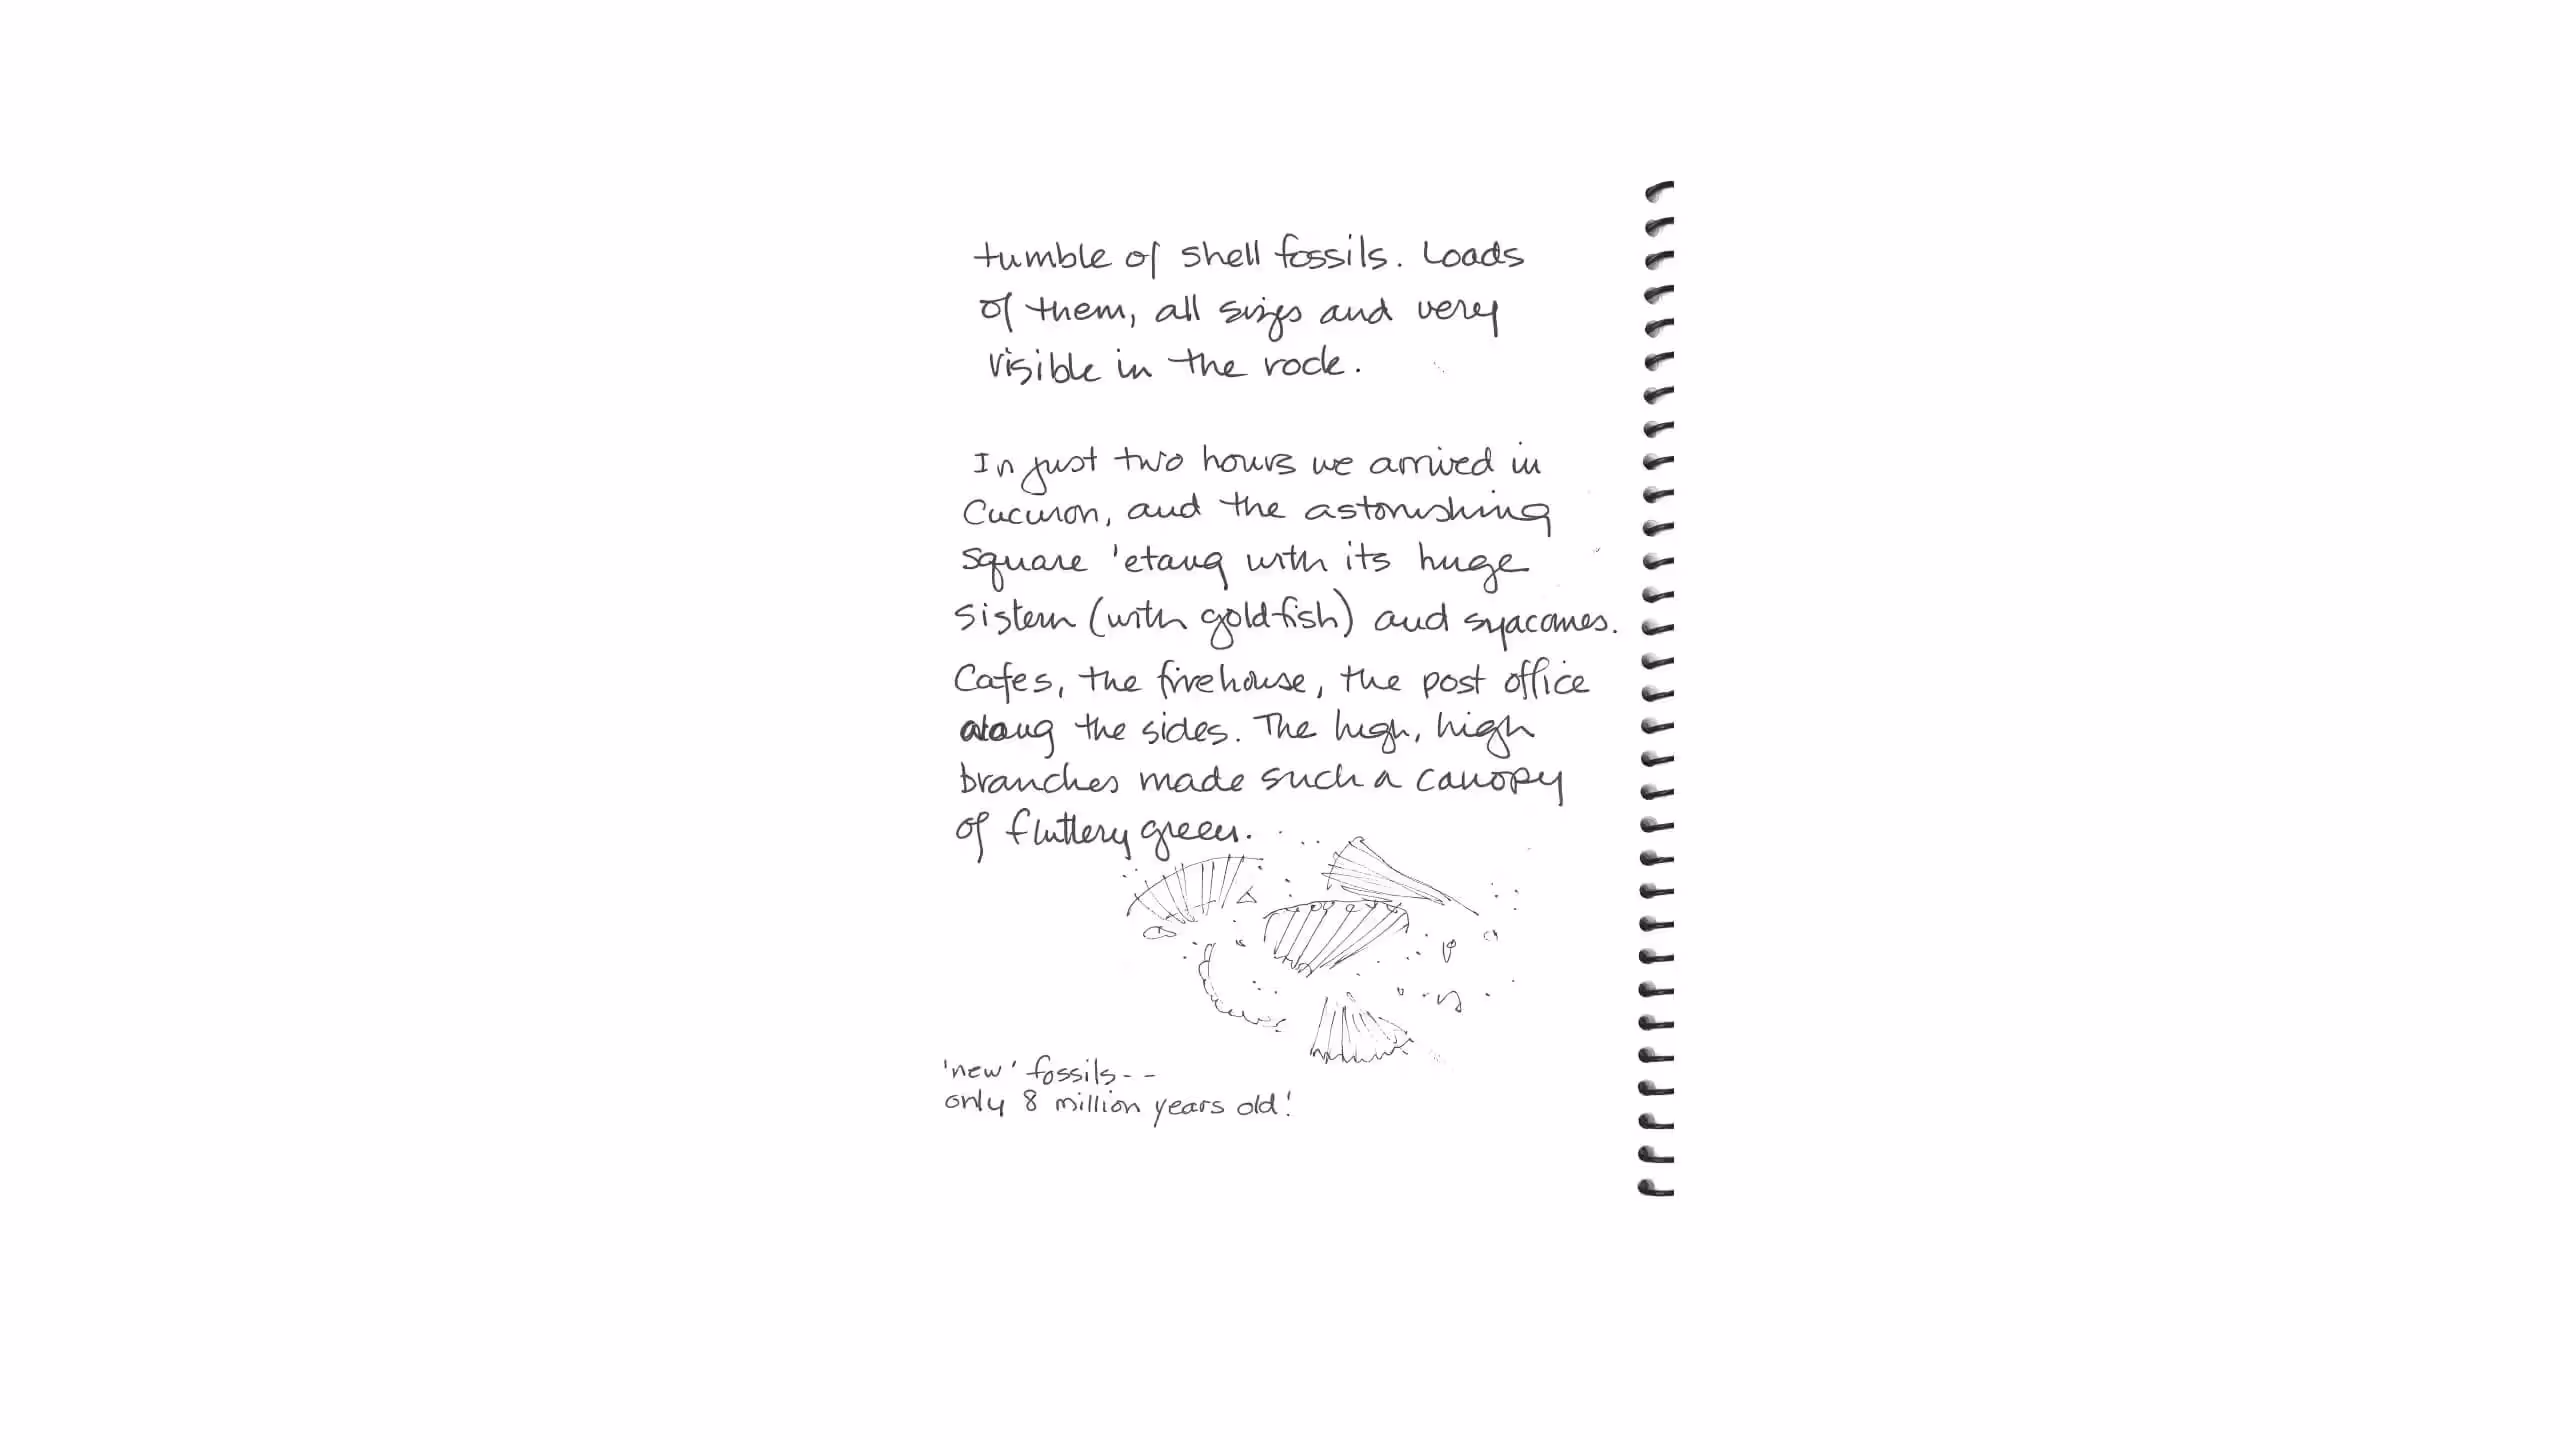 tumble of shell fossils. Loads
of them, all sizes and very
visible in the rock.
In just two hours we arrived in
Cucuron, and the astonishing
square 'etang with its huge
sistern (with goldfish) and syacomes.
Cafes, the firehouse, the post office
along the sides. The high, high
branches made such a canopy
of fluttery green.
'new' fossils--
only 8 million years old!